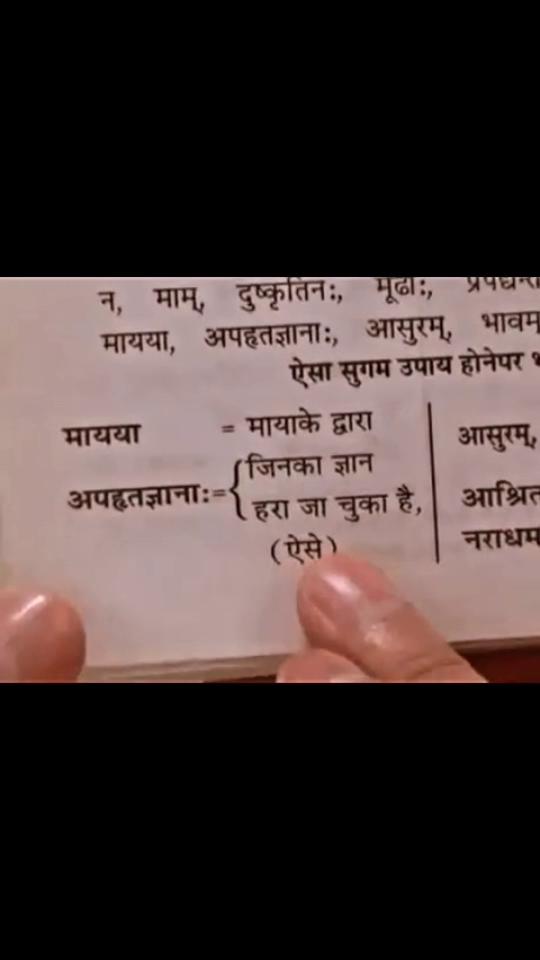 न, माम्, दुष्कृतिनः, मूढाः,
मायया, अपहृतज्ञानाः, आसुरम्, भावम्
ऐसा सुगम उपाय होनेपर
मायया = मायाके द्वारा
अपहृतज्ञानाः= { जिनका ज्ञान
हरा जा चुका है,
(ऐसे)
आसुरम्,
आश्रित
नराधम